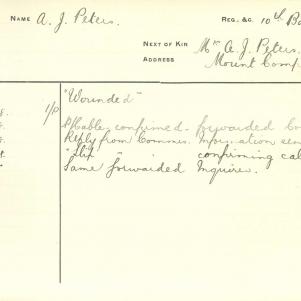 NAME A. J. Peters. REG. &C. 10th Ba
NEXT OF KIN Mrs A. J. Peters.
ADDRESS Mount Comp
"Wounded"
1/P Cable confirmed - forwaded
Reply from Commes. Information sen
"Slip" confirming cal
Same forwaided Inquirer.